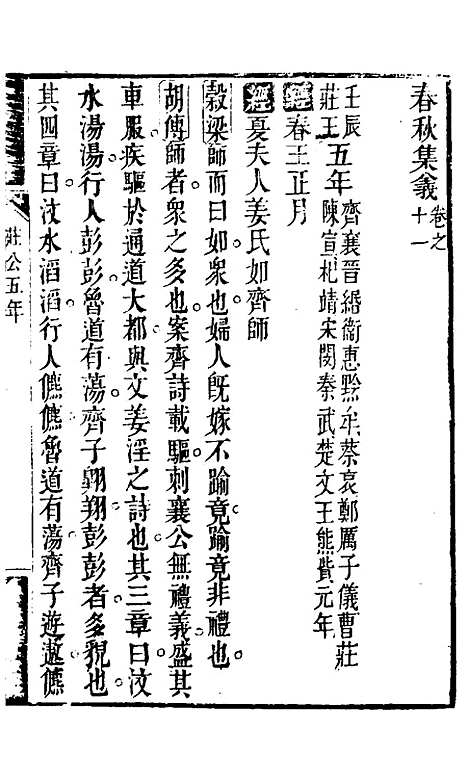 春秋集義卷之十一
壬辰莊王五年齊襄晉緡衛惠黔牟蔡哀鄭厲子儀曹莊陳宣杞靖宋閔秦武楚文王熊貲元年
經春王正月
經夏夫人姜氏如齊師
穀梁師而曰如衆也婦人旣嫁不踰竟踰竟非禮也
胡傳師者衆之多也案齊詩載驅刺襄公無禮義盛其
車服疾驅於通道大都與文姜淫之詩也其三章曰汶
水湯湯行人彭彭魯道有蕩齊子翺翔彭彭者多貌也
其四章曰汶水滔滔行人儦儦魯道有蕩齊子遊遨儦
莊公五年